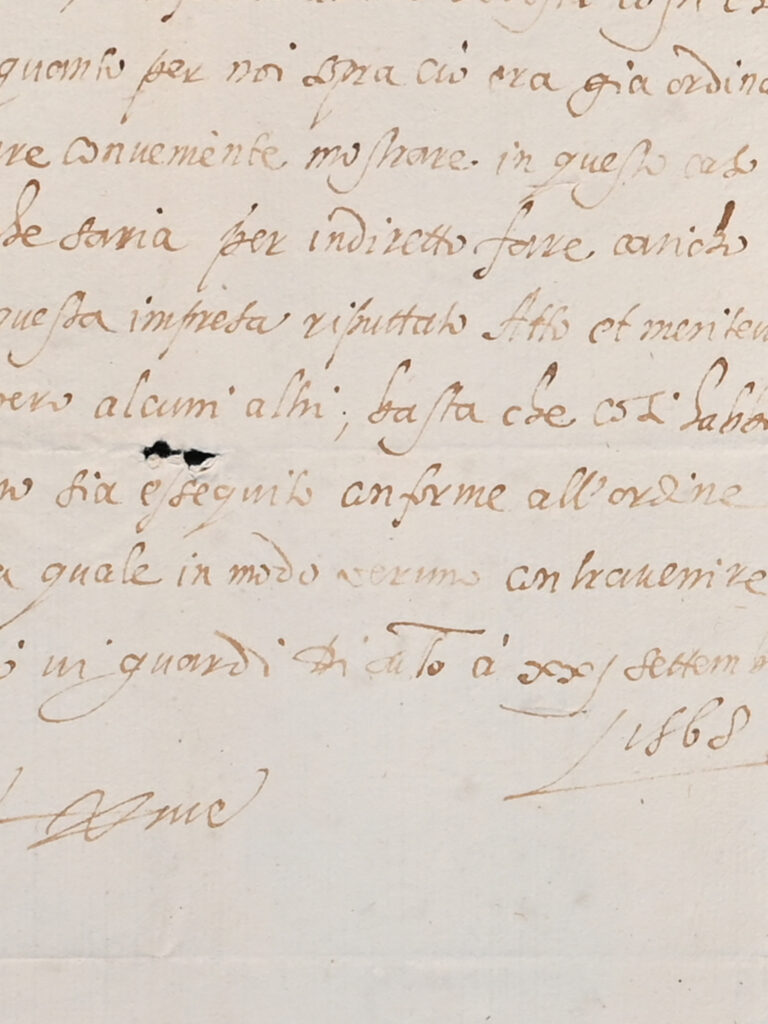 quanto per noi sopra ciò era già ordina
re conveniente mostrare in questo caso
he saria per indiretto fare caricho
questa impresa riputtato Atto et meritev
pero alcuni altri; basta che così habb
sia esseguito conforme all'ordine
a quale in modo veruno contravenire
vi guardi Di à xxj settemb
1568